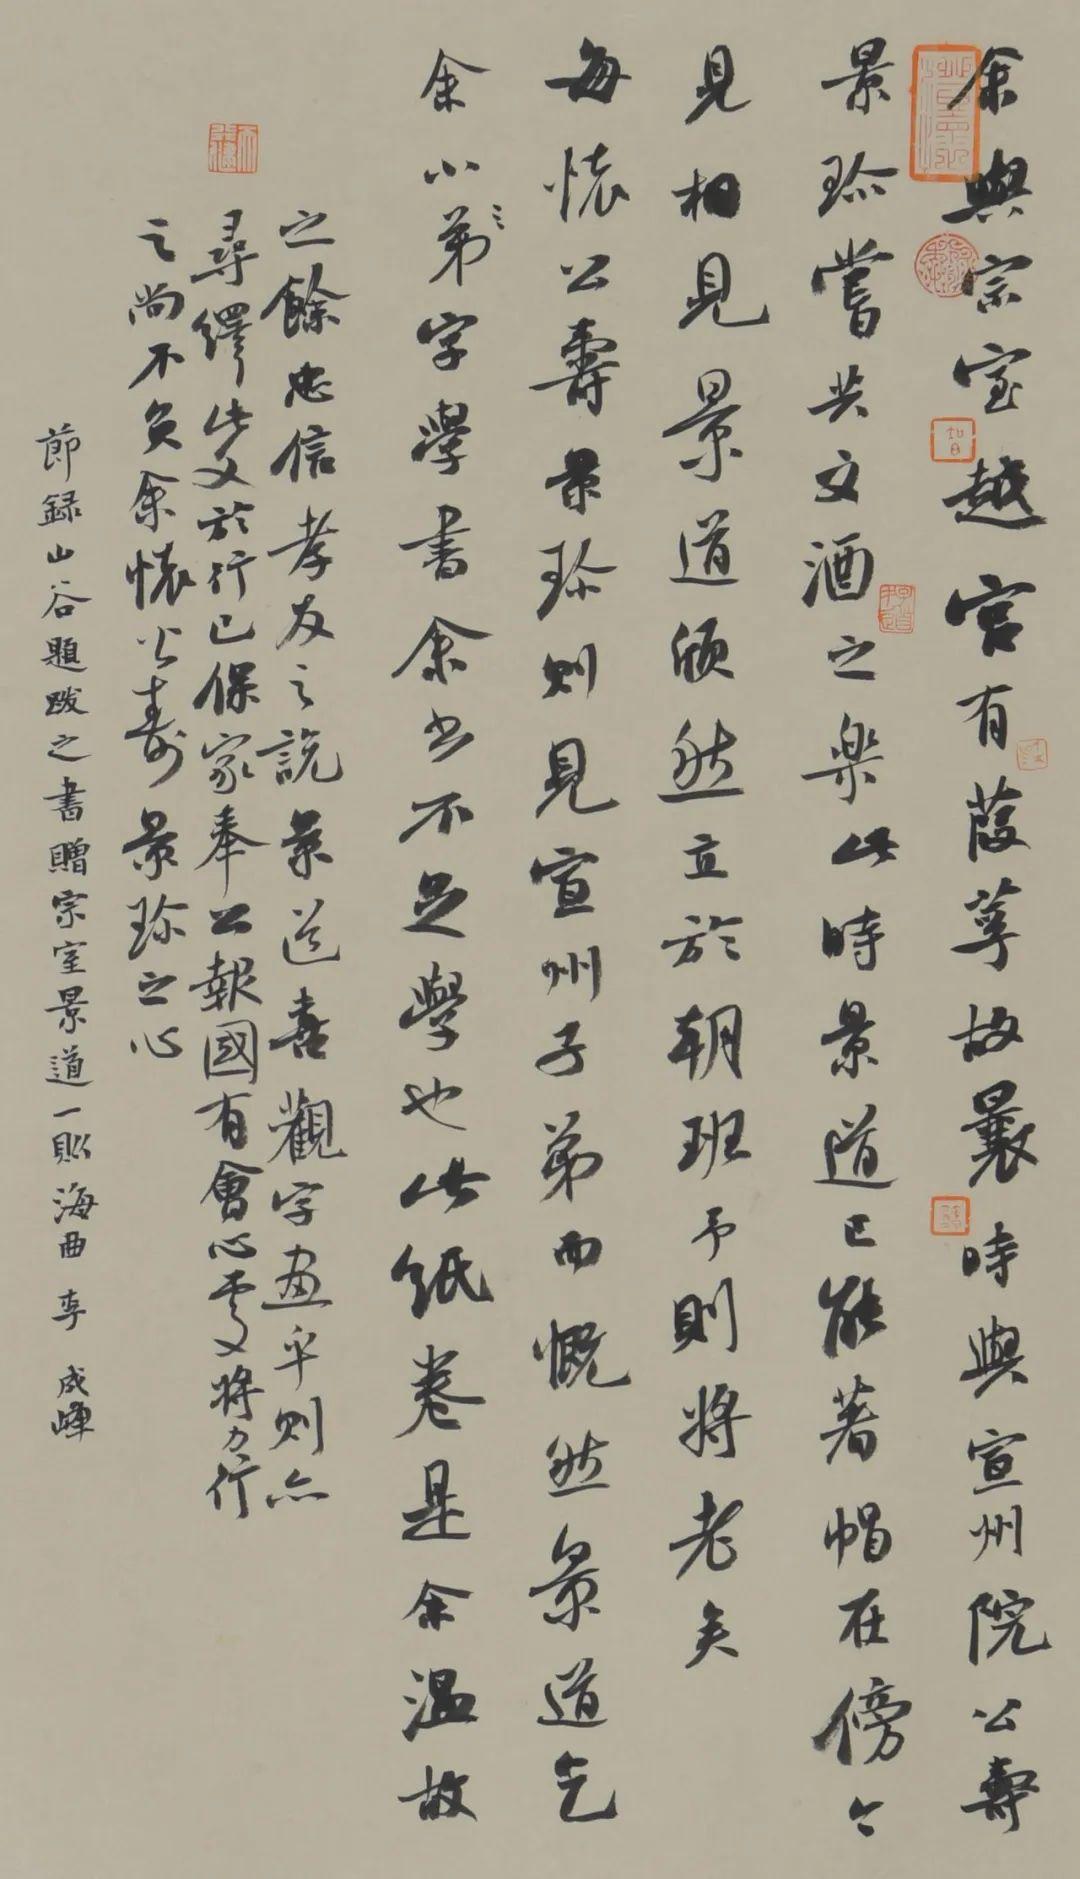 余與宗室越宮有葭莩故曩時與宣州院公壽
景珍嘗共文酒之樂此時景道已能著帽在傍今
見相見景道頎然立於朝班予則將老矣
每懷公壽景珍則見宣州子弟而慨然景道乞
余小弟字學書余书不足學也此紙卷是余溫故
之餘忠信孝友之說景道喜觀字畫乎則亦
尋繹此文於行己保家奉公報國有會心處將力行
之尚不負余懷公壽景珍之心
節録山谷題跋之書贈宗室景道一則海曲李成峰